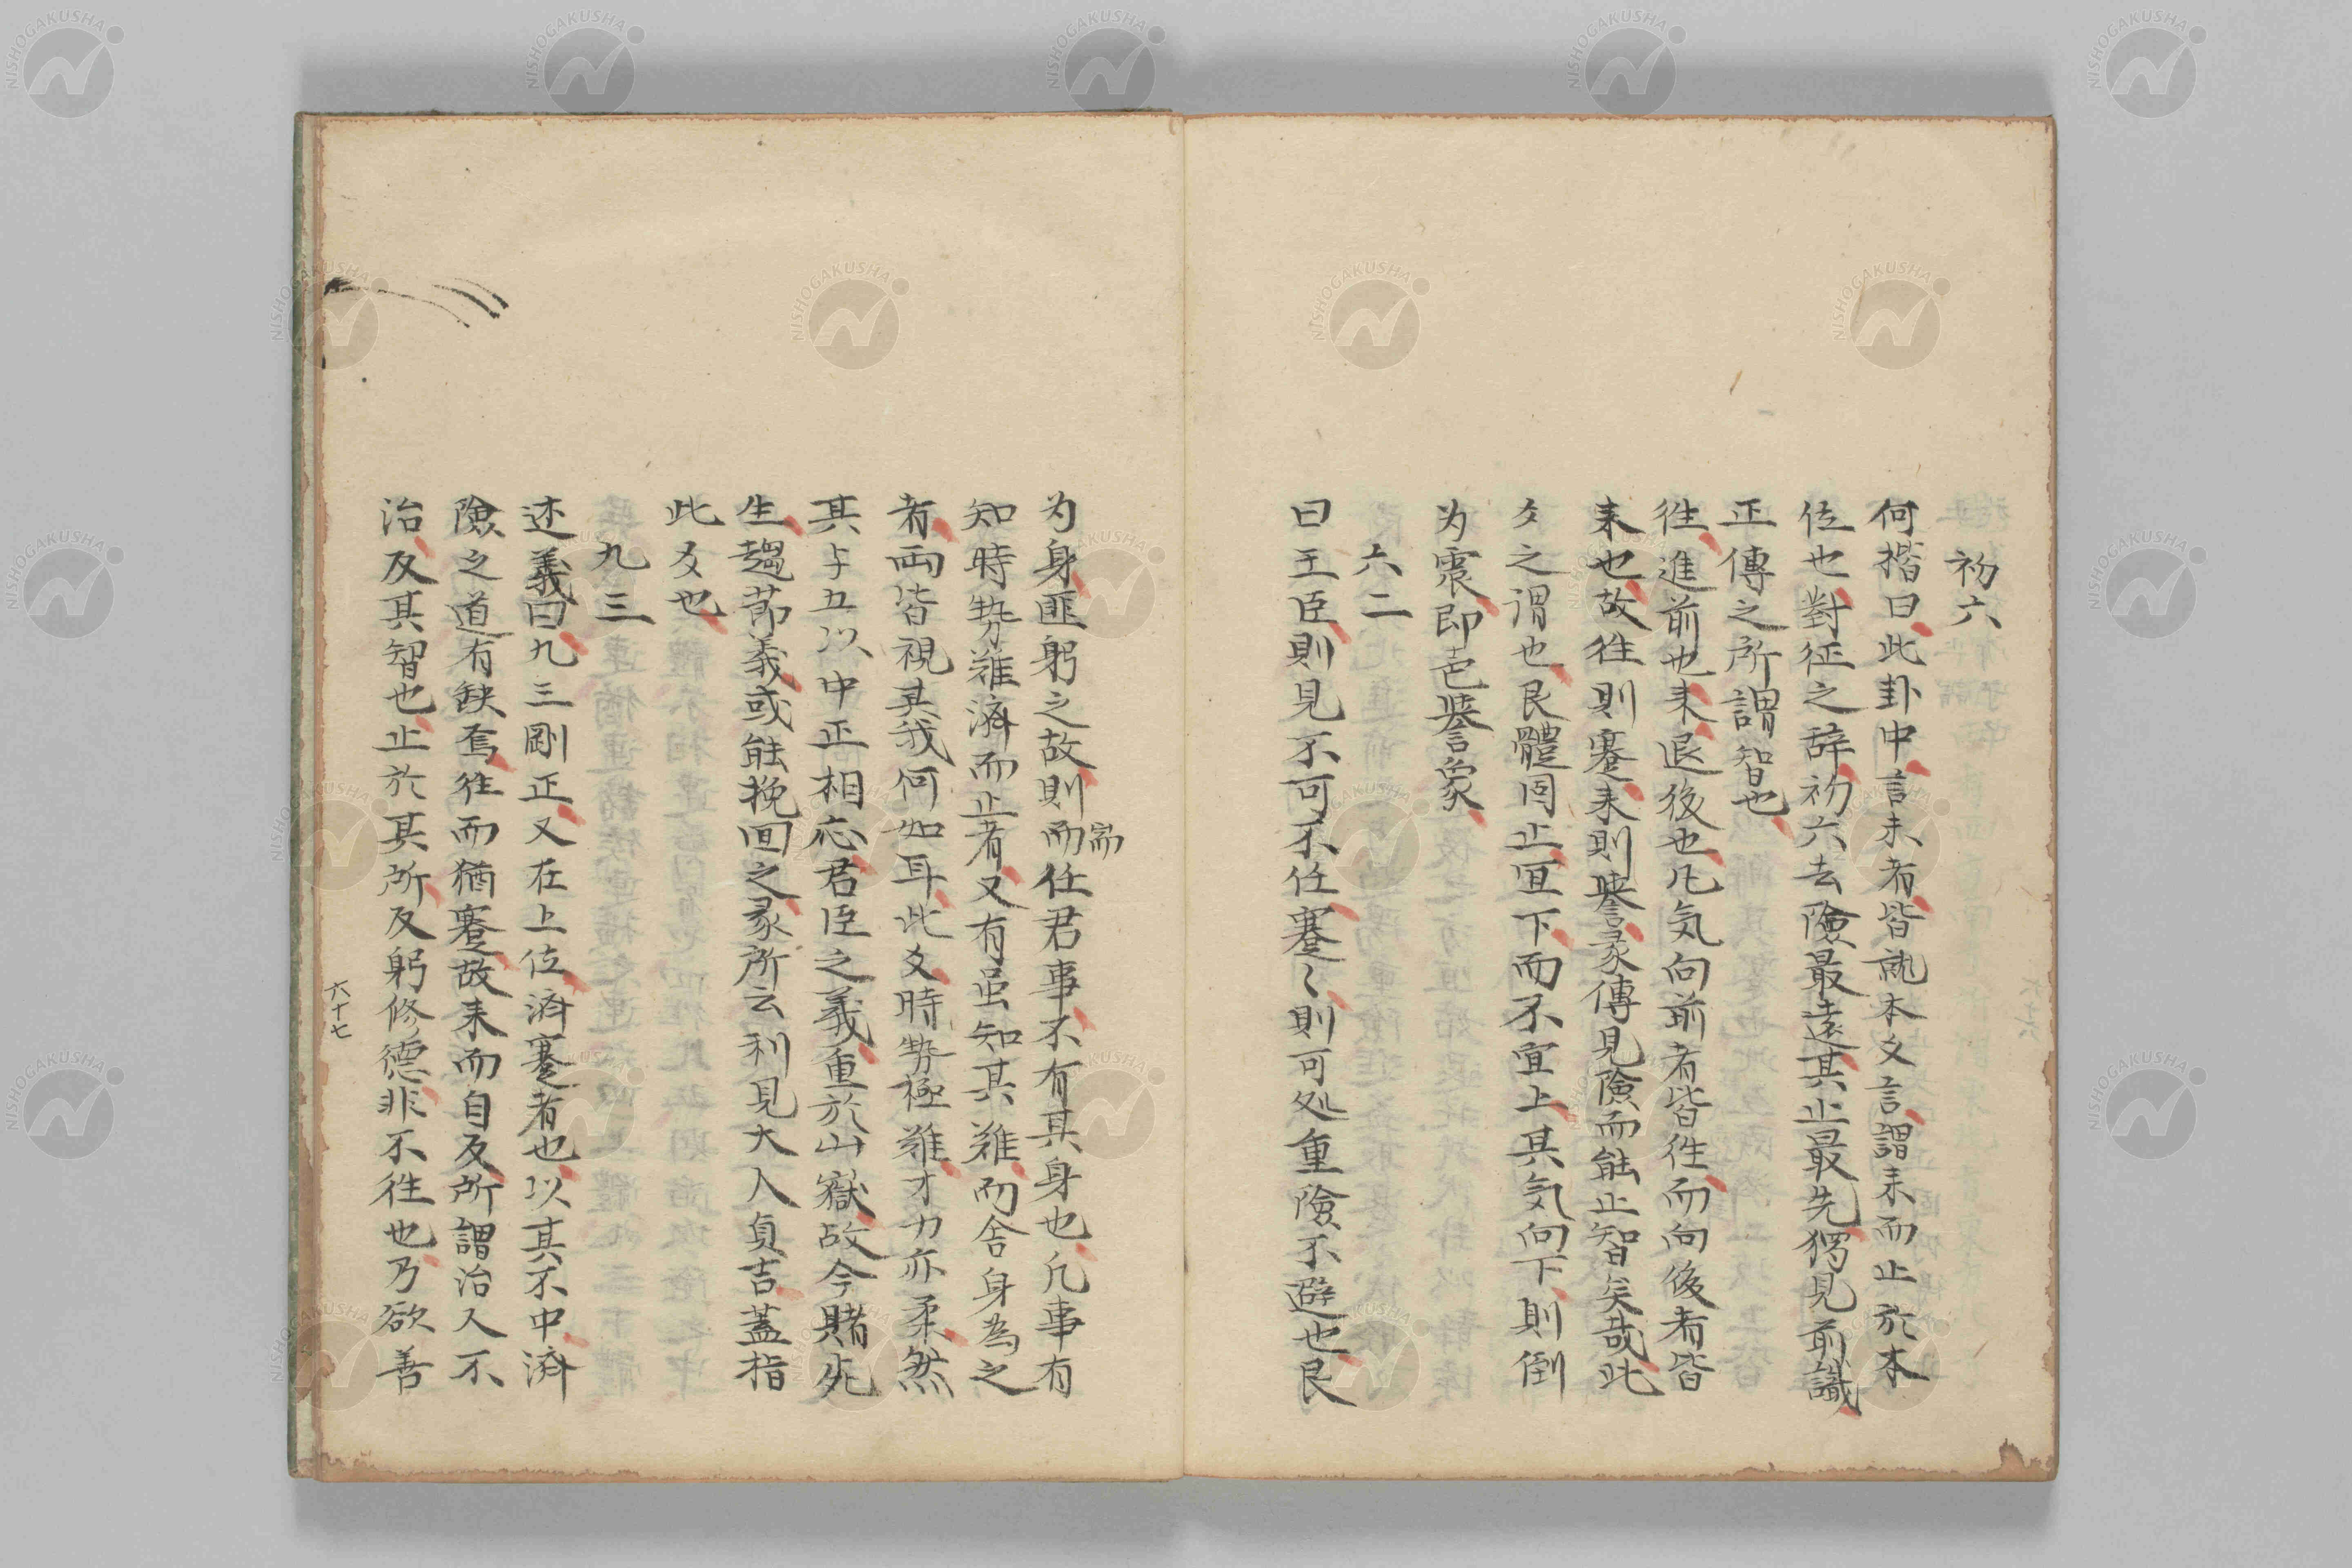 初六
何揩曰此卦中言来者皆就本爻言謂来而止於本
位也對征之辞初六去險最遠其止最先獨見前識
正傳之所謂智也
往進前也来退後也凡気向前者皆往而向後者皆
来也故往則蹇来則譽彖傳見險而能止智矣哉此
爻之謂也艮體固止宜下而不宜上其気向下則倒
为震即已譽象
六二
曰王臣則見不可不任蹇〻則可処重險不避也艮
为身匪躬之故則而任君事不有其身也凡事有
知時勢難濟而止者又有虽知其難而舎身為之
者両皆視其我何如耳此爻時勢極難才力亦柔然
其与五以中正相応君臣之義重於山嶽故今賭死
生趨節義或能挽回之彖所云利見大人貞吉蓋指
此爻也
九三
述義曰九三剛正又在上位済蹇者也以其不中済
險之道有缺焉往而猶蹇故来而自反所謂治人不
治反其智也止於其所反躬修德非不往也乃欲善
六十七
NISHOGAKUSHA